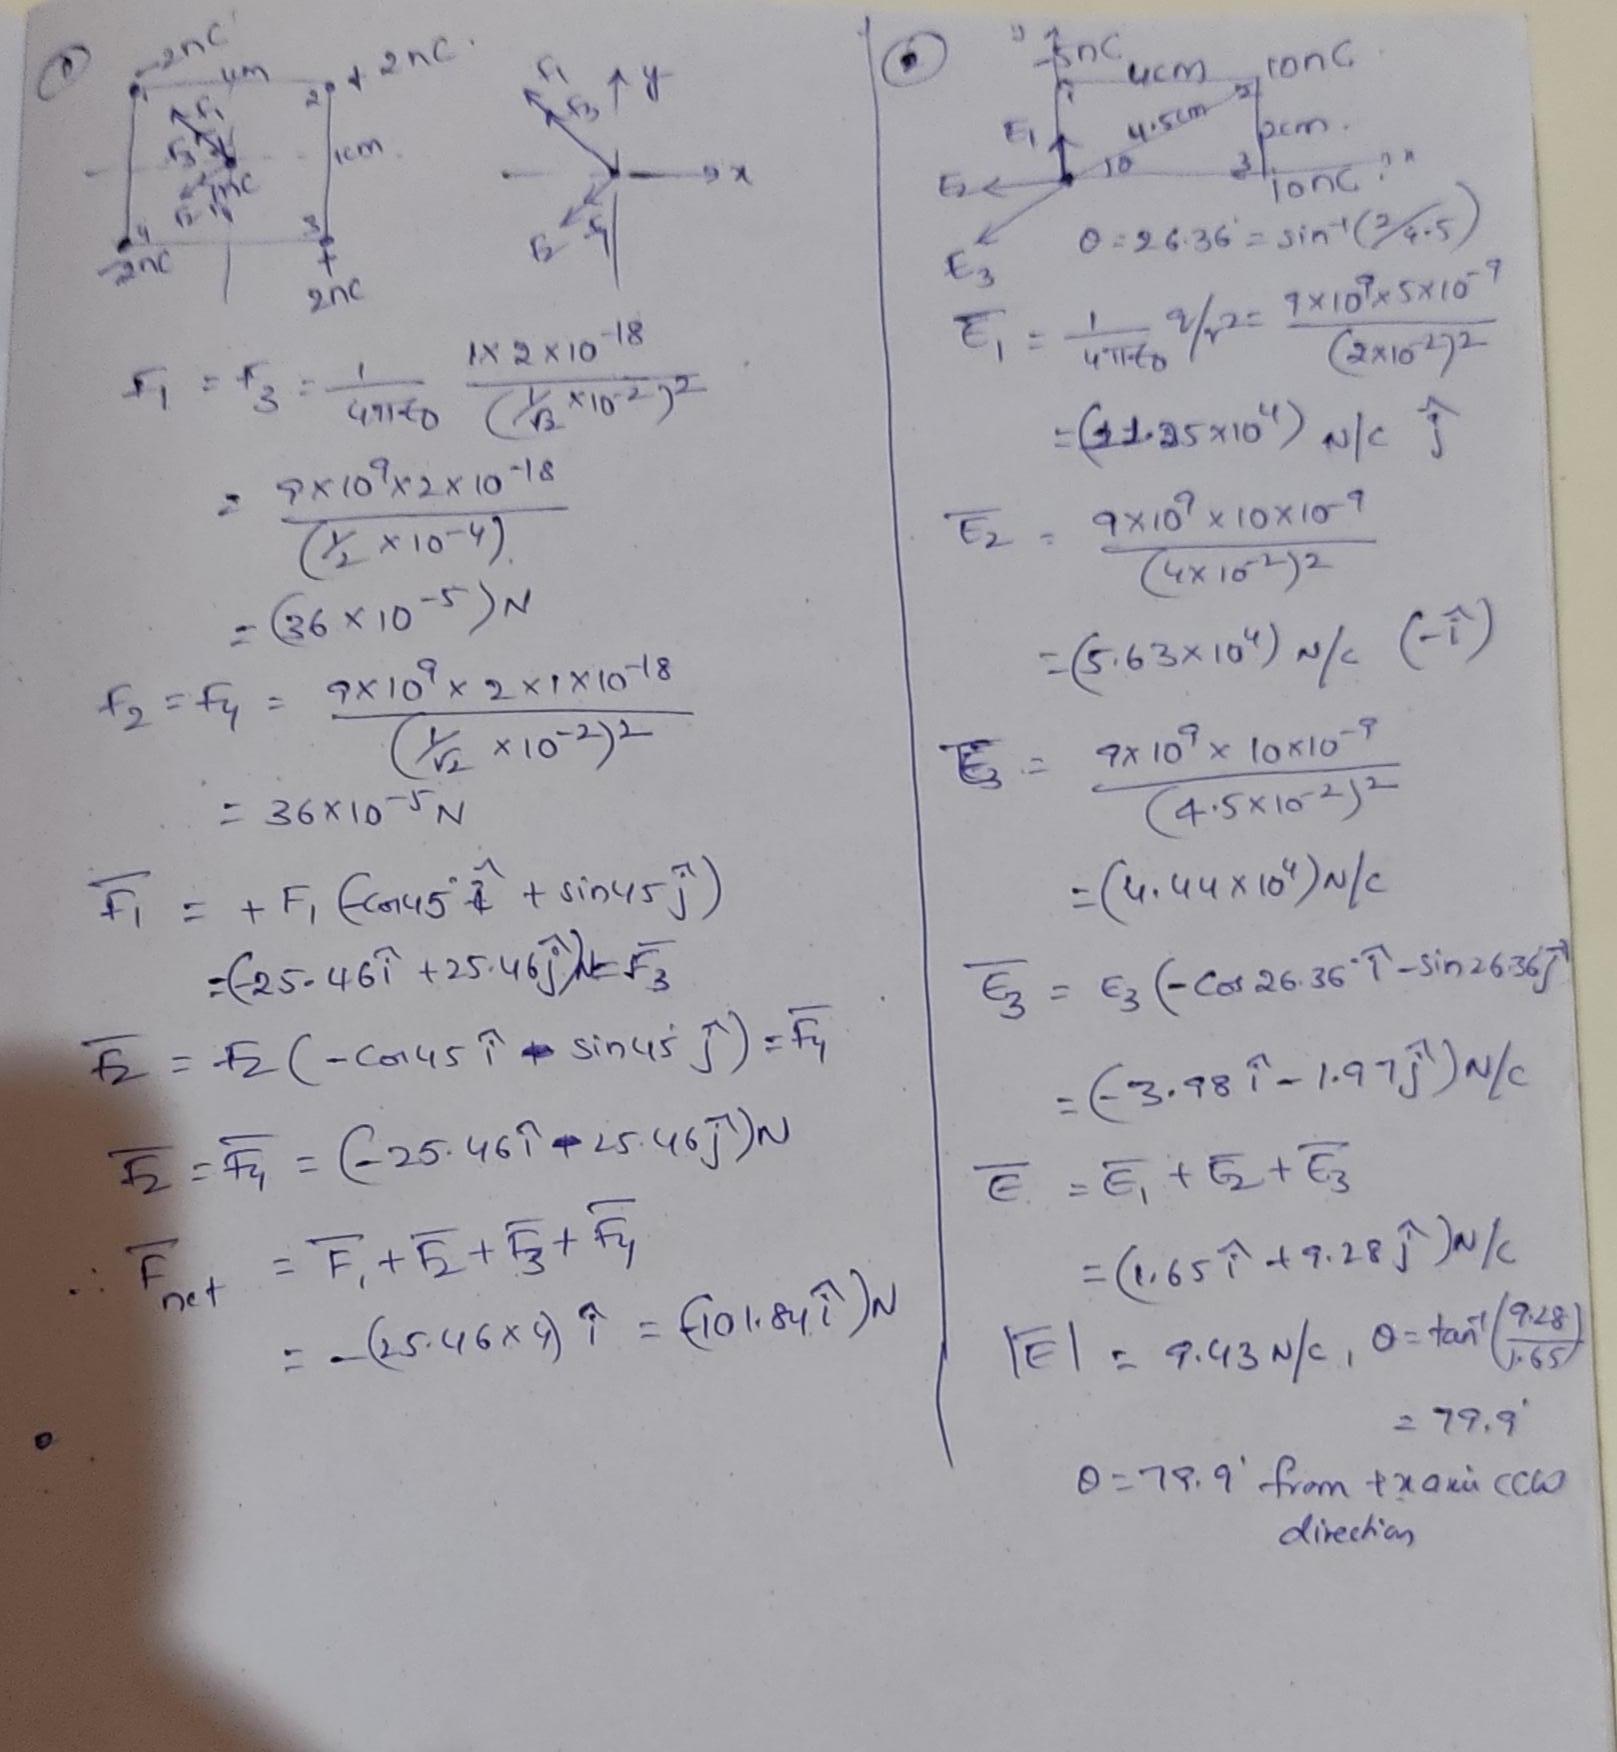 ①
-2nC
4m
+2nC
1
2
F₁
F₃
1cm
1nC
F₂
4
3
-2nC
+
2nC
F₁
F₃
y
x
F₂
F₄
F₁ = F₃ = 1/4πε₀ 1×2×10⁻¹⁸/(1/√2 ×10⁻²)²
= 9×10⁹×2×10⁻¹⁸/(1/2 ×10⁻⁴)
= (36×10⁻⁵)N
F₂ = F₄ = 9×10⁹×2×1×10⁻¹⁸/(1/√2 ×10⁻²)²
= 36×10⁻⁵N
F̄₁ = +F₁ (-cos45° î + sin45 ĵ)
=(-25.46î +25.46ĵ)N = F̄₃
F̄₂ = F₂ (-cos45 î - sin45 ĵ) = F̄₄
F̄₂ = F̄₄ = (-25.46î - 25.46ĵ)N
∴ F̄net = F̄₁ + F̄₂ + F̄₃ + F̄₄
= -(25.46×4) î = (-101.84î)N
-5nC
4cm
10nC
1
2
E₁
4.5cm
2cm
E₂
θ
3
10nC
x
E₃
θ = 26.36° = sin⁻¹(2/4.5)
Ē₁ = 1/4πε₀ q/r² = 9×10⁹×5×10⁻⁹/(2×10⁻²)²
=(11.25×10⁴) N/C ĵ
Ē₂ = 9×10⁹×10×10⁻⁹/(4×10⁻²)²
=(5.63×10⁴) N/C (-î)
E₃ = 9×10⁹×10×10⁻⁹/(4.5×10⁻²)²
=(4.44×10⁴)N/C
Ē₃ = E₃ (-cos26.36° î - sin26.36ĵ)
=(-3.98î - 1.97ĵ)N/C
Ē = Ē₁ + Ē₂ + Ē₃
=(1.65î + 9.28ĵ)N/C
|Ē| = 9.43 N/C, θ = tan⁻¹(9.28/1.65)
= 79.9°
θ = 79.9° from +x axis CCW
direction